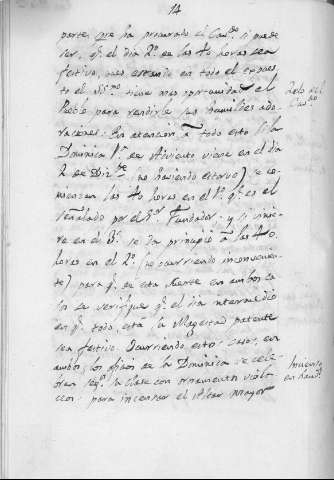 14
parte, que ha procurado el Cav.do si puede
ser, q.e el dia 2.o de las 40 horas sea
festivo, pues estando en todo el expues
to el SS.mo tiene mas oportunidad el
Pueblo para rendirle sus humildes ado
raciones. En atencion à todo esto si la
Dominica 1.a de Adviento viene en el dia
2 de Diz.re (no haviendo estorvo) se co
mienzan las 40 horas en el 1.o q.e es el
señalado por el S.or Fundador: y si vinie
re en el 3.o se da principio à las 40
horas en el 2.o (no ocurriendo inconvenien
te) para q.e de esta suerte en ambos ca
sos se verifique q.e el dia intermedio
en q.e todo està la Magestad patente
sea festivo. Ocurriendo esto caso, en
ambos, los oficios de la Dominica se cele
bran seg.n la clase con ornamento viola
ceo: para incensar el Altar mayor
Zelo del
Cav.do
Incienso